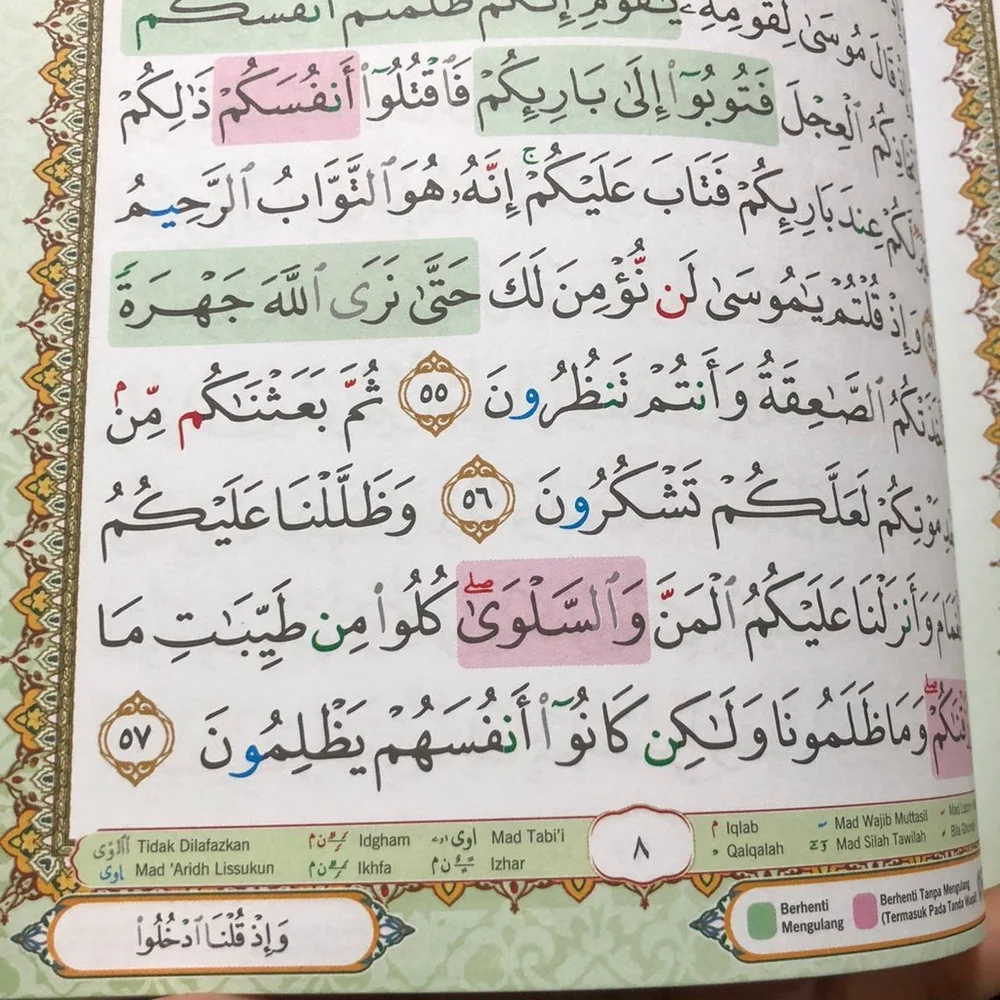 قَالَ مُوسَىٰ لِقَوْمِهِۦ يَٰقَوْمِ إِنَّكُمْ ظَلَمْتُمْ أَنفُسَكُم
ٱلْعِجْلَ فَتُوبُوٓا۟ إِلَىٰ بَارِئِكُمْ فَٱقْتُلُوٓا۟ أَنفُسَكُمْ ذَٰلِكُمْ
لَّكُمْ عِندَ بَارِئِكُمْ فَتَابَ عَلَيْكُمْ ۚ إِنَّهُۥ هُوَ ٱلتَّوَّابُ ٱلرَّحِيمُ
وَإِذْ قُلْتُمْ يَٰمُوسَىٰ لَن نُّؤْمِنَ لَكَ حَتَّىٰ نَرَى ٱللَّهَ جَهْرَةً
ٱلصَّٰعِقَةُ وَأَنتُمْ تَنظُرُونَ ٥٥ ثُمَّ بَعَثْنَٰكُم مِّنۢ
مَوْتِكُمْ لَعَلَّكُمْ تَشْكُرُونَ ٥٦ وَظَلَّلْنَا عَلَيْكُمُ
وَأَنزَلْنَا عَلَيْكُمُ ٱلْمَنَّ وَٱلسَّلْوَىٰ ۖ كُلُوا۟ مِن طَيِّبَٰتِ مَا
وَمَا ظَلَمُونَا وَلَٰكِن كَانُوٓا۟ أَنفُسَهُمْ يَظْلِمُونَ ٥٧
Tidak Dilafazkan Idgham Mad Tabi'i
Mad 'Aridh Lissukun Ikhfa Izhar
٨
Iqlab Mad Wajib Muttasil
Qalqalah Mad Silah Tawilah
وَإِذْ قُلْنَا ٱدْخُلُوا۟
Berhenti Mengulang
Berhenti Tanpa Mengulang
(Termasuk Pada Tanda Waqaf)